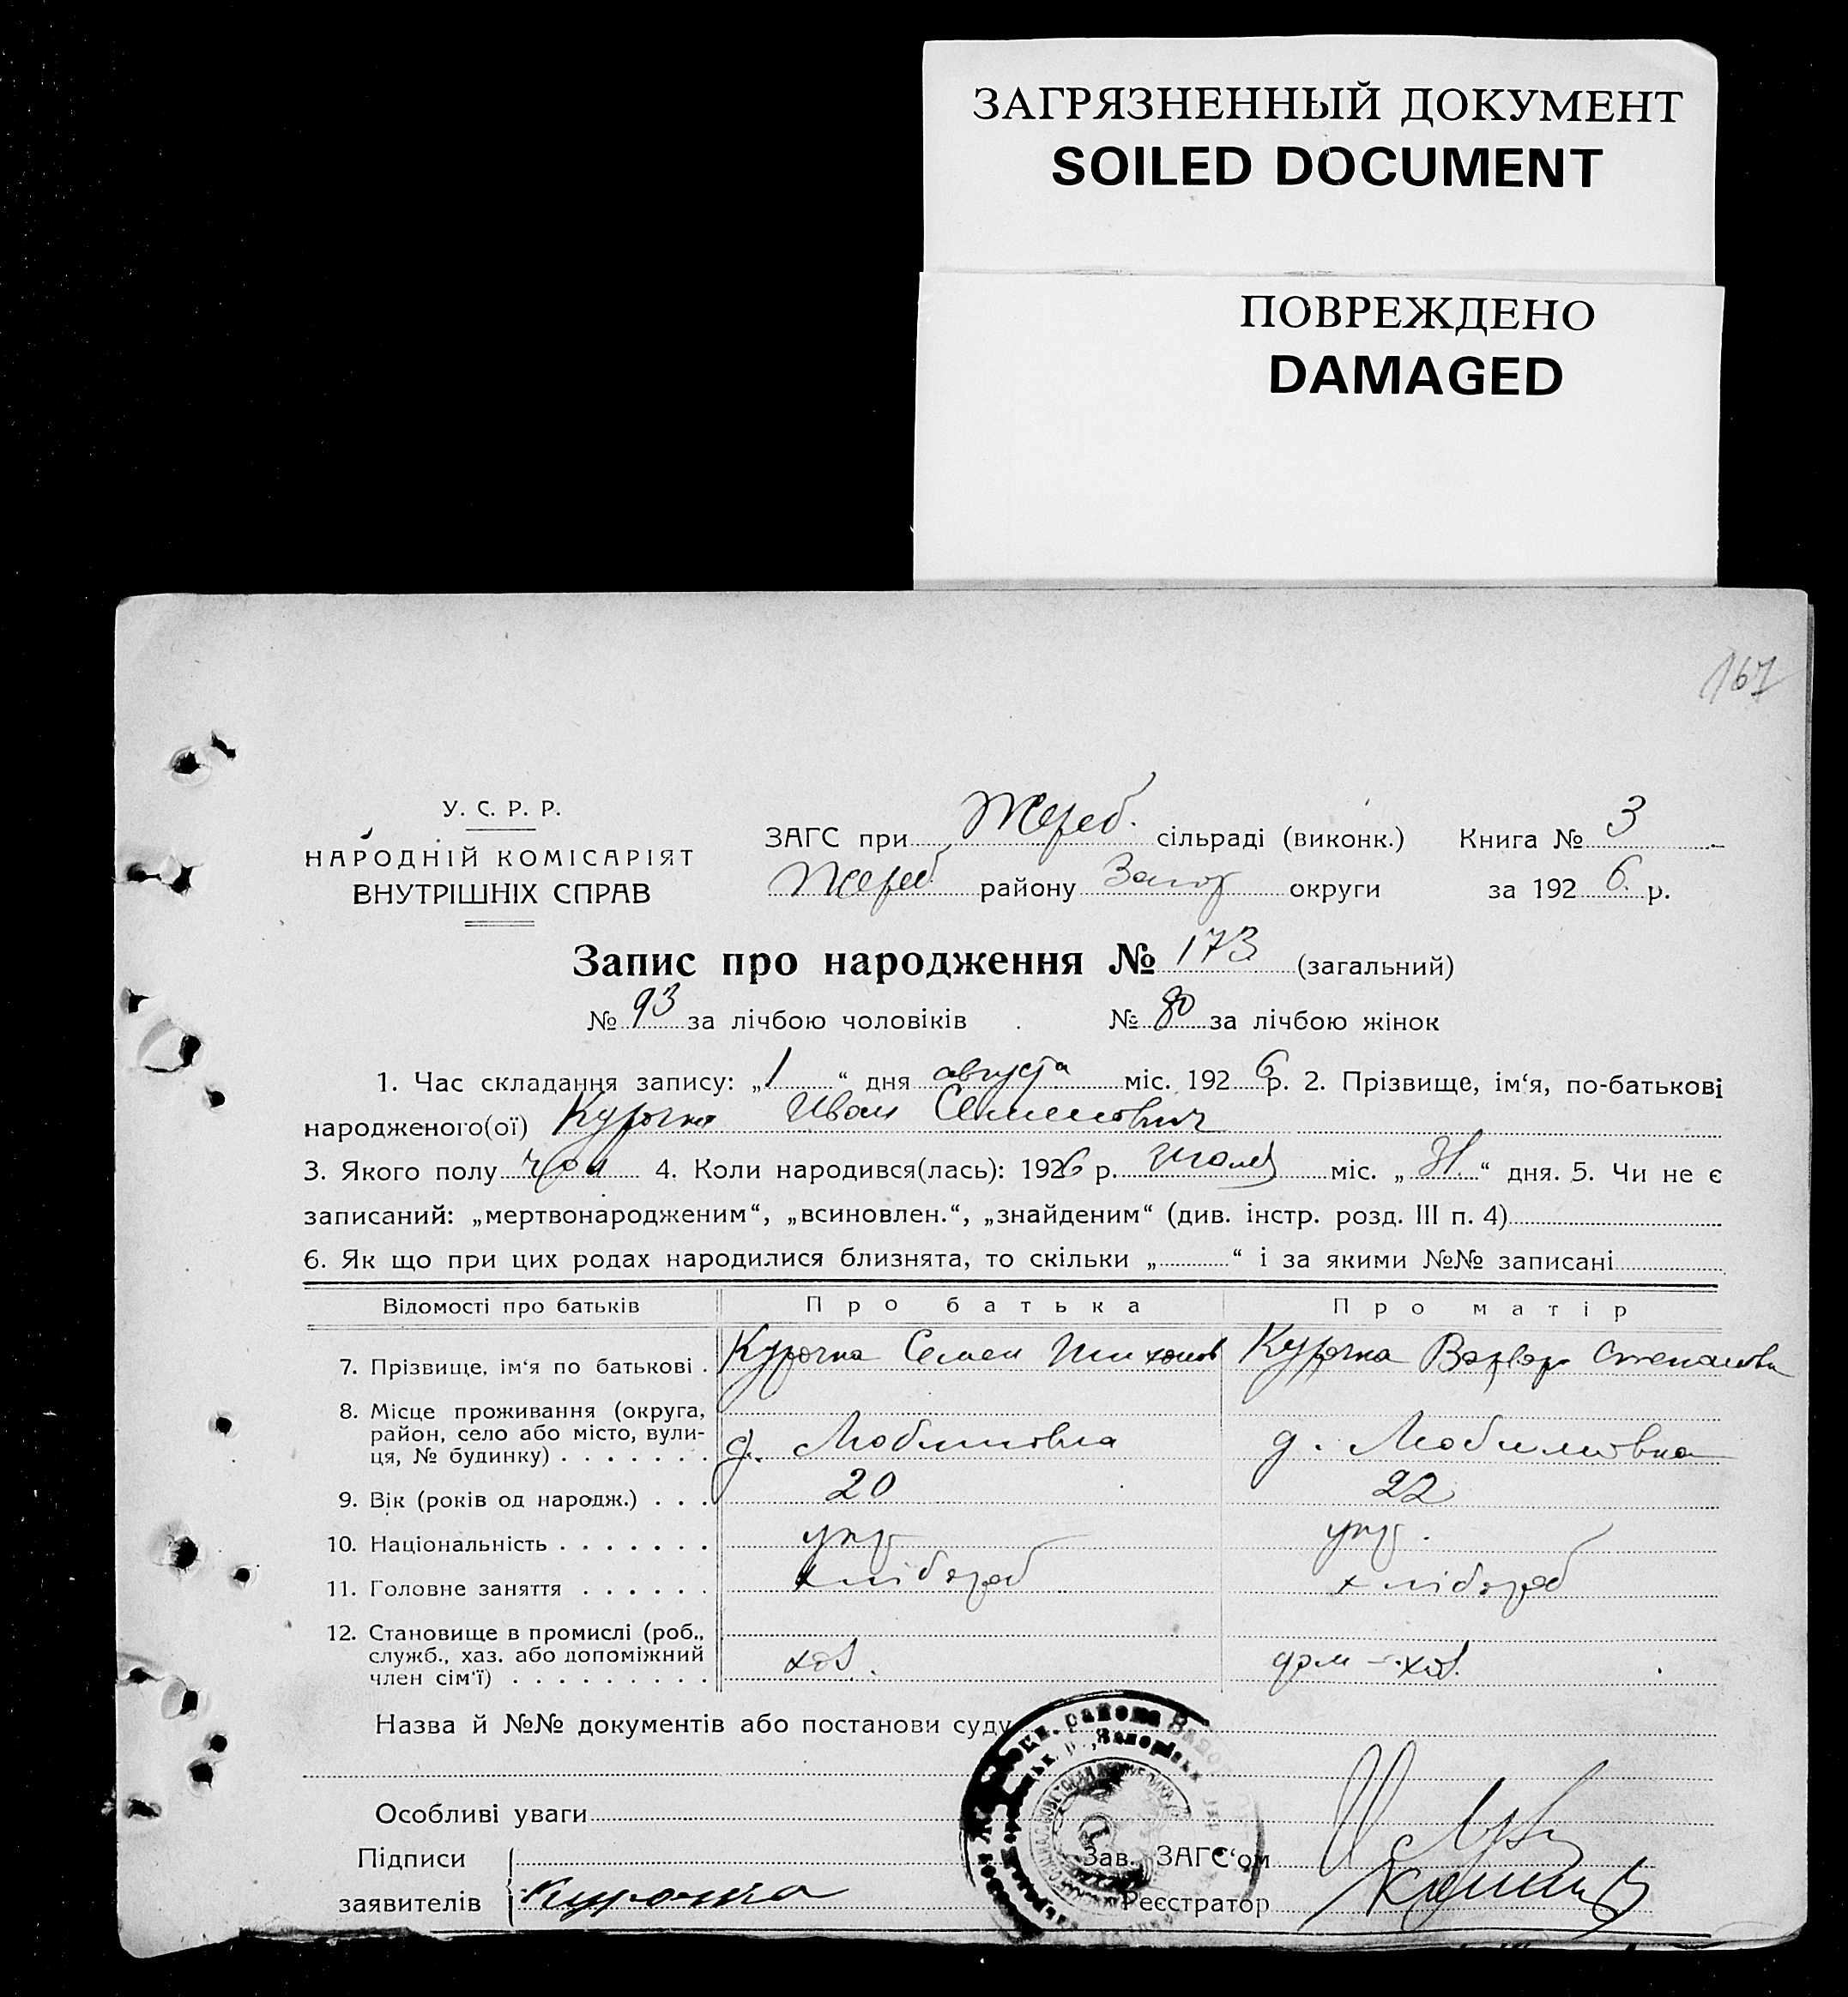 ЗАГРЯЗНЕННЫЙ ДОКУМЕНТ
SOILED DOCUMENT
ПОВРЕЖДЕНО
DAMAGED
167
У. С. Р. Р.
НАРОДНІЙ КОМІСАРІЯТ
ВНУТРІШНІХ СПРАВ
ЗАГС при Жереб. сільраді (виконк.) Книга № 3
Жереб району Запор округи за 1926 р.
Запис про народження № 173 (загальний)
№ 93 за лічбою чоловіків № 80 за лічбою жінок
1. Час складання запису: „1“ дня августа міс. 1926 р. 2. Прізвище, ім‘я, по-батькові
народженого(ої) Курочка Иван Семенович
3. Якого полу чол 4. Коли народився(лась): 1926 р. июля міс. „31“ дня. 5. Чи не є
записаний: „мертвонародженим“, „всиновлен.“, „знайденим“ (див. інстр. розд. III п. 4)
6. Як що при цих родах народилися близнята, то скільки „ “ і за якими №№ записані
Відомості про батьків Про батька Про матір
7. Прізвище, ім‘я по батькові . Курочка Семен Тихонов Курочка Варвара Степановна
8. Місце проживання (округа,
район, село або місто, вули-
ця, № будинку) . . . . . . . д. Любимовка д. Любимовка
9. Вік (років од народж.) . . . 20 22
10. Національність . . . . . . . укр укр.
11. Головне заняття . . . . . . хлібороб хлібороб
12. Становище в промислі (роб.,
служб., хаз. або допоміжний
член сім‘ї) . . . . . . . . . хоз. дом-хоз.
Назва й №№ документів або постанови суду
Особливі уваги
Підписи
заявителів Курочка
Зав. ЗАГС‘ом
Реєстратор